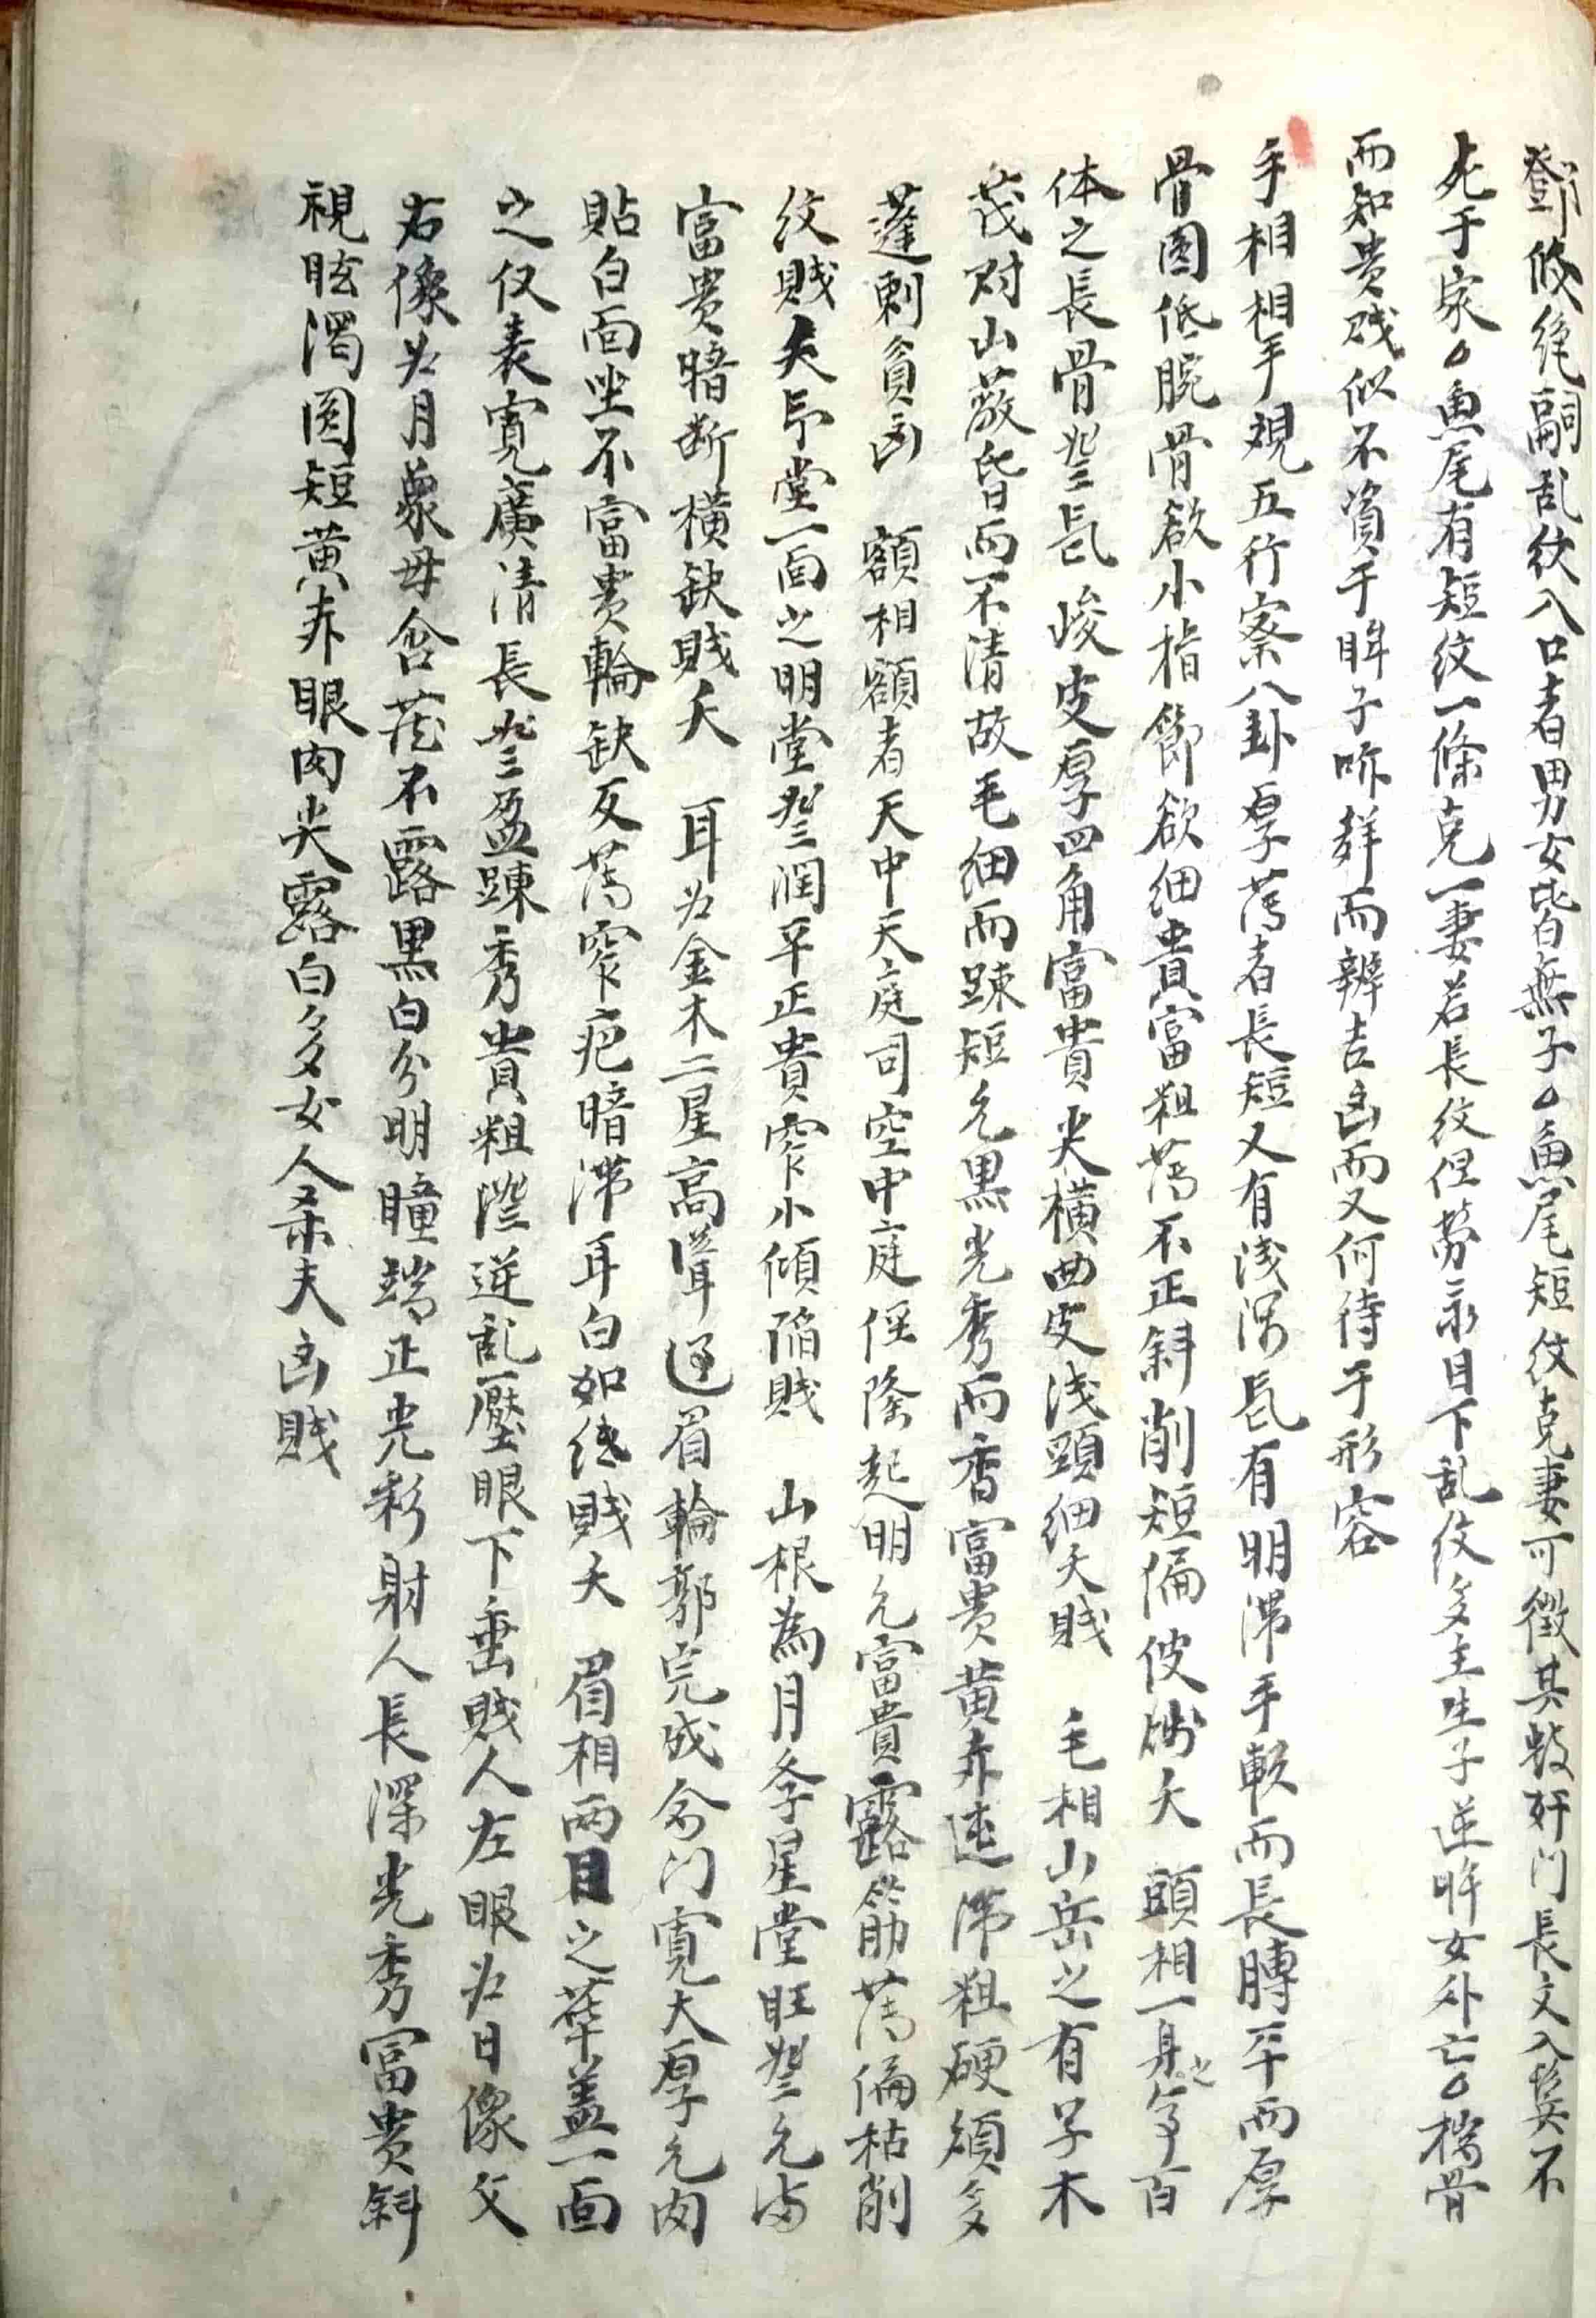 鄧攸絶嗣乱紋入口者男女皆無子魚尾短紋克妻可徵其奸门長文入鬂不
死于家魚尾有短紋一條克一妻若長紋但劳永目下乱紋多主生子逆眸女外亡揣骨
而知贵贱似不資于眸子听聲而辨吉凶而又何待于形容
手相相手規五行察八卦厚薄者長短又有浅深氣有明滞手軟而長膊平而厚
骨圓低腕骨欲小指節欲細貴富粗薄不正斜削短偏夭頭相一身之尊百
体之長骨聳氣峻皮厚四角富貴尖横曲皮浅頭細夭賎毛相山岳之有草木
茂則山蔽皆而不清故毛細而踈短黑光秀而香富贵黄赤滞粗硬煩多
蓬剌貧凶額相額者天中天庭司空中庭隆起明富貴露筋薄偏枯削
紋賎夭印堂一面之明堂聳润平正貴窄小傾陷賎山根為月孛星堂旺聳满
富贵暗断横缺賎夭耳为金木二星高聳过眉輪郭完成命门寛大厚肉
貼白面生不富贵輪缺反薄窄疤暗滞耳白如賎夭眉相两目之華盖一面
之仪表寛廣清長聳盈踈秀貴粗逆乱壓眼下垂賎人左眼为日像父
右像为月象母含藏不露黑白分明瞳端正光彩射人長深光秀富贵斜
視眩濁圆短黄赤眼肉尖露白多女人杀夫凶賎